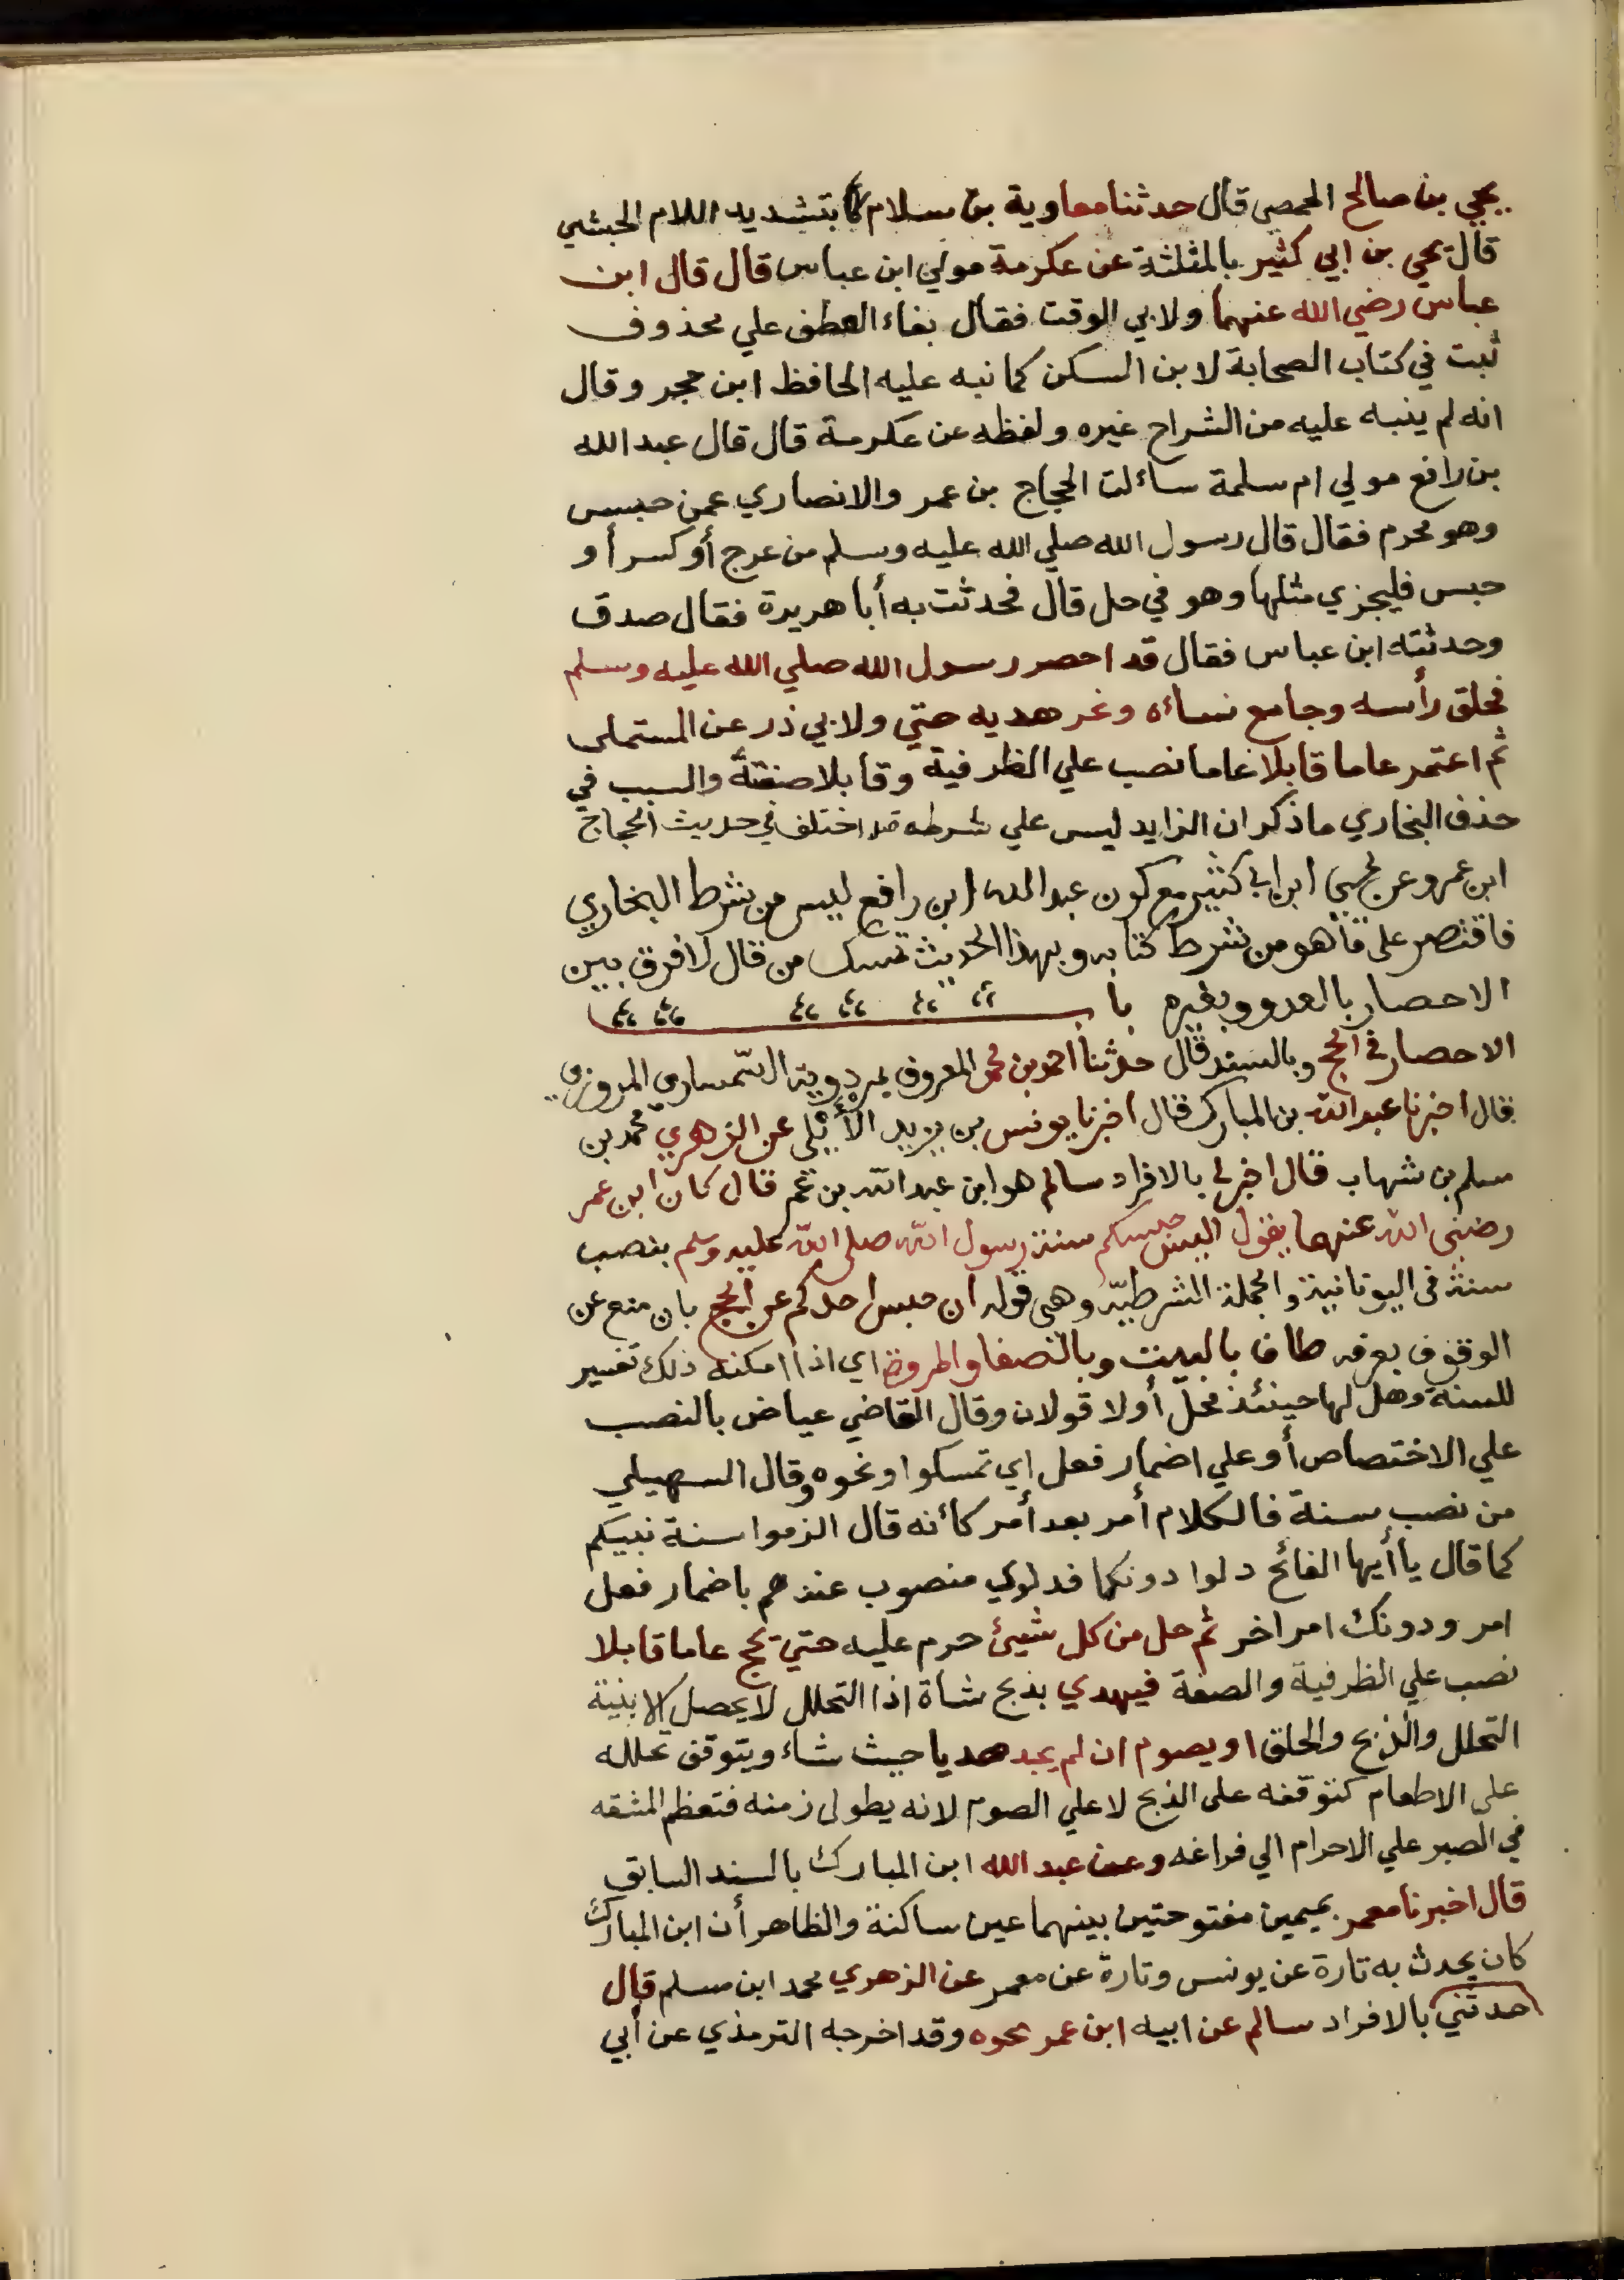 يحيي بن صالح الحمصي قال حدثنا معاوية بن سلام بتشديد اللام الحبشي
قال يحي بن ابي كثير بالمثلثة عن عكرمة مولي ابن عباس قال قال ابن
عباس رضي الله عنهما ولابي الوقت فقال بفاء العطف علي محذوف
ثبت في كتاب الصحابة لابن السكن كما نبه عليه الحافظ ابن حجر وقال
انه لم ينبه عليه من الشراح غيره ولفظه عن عكرمة قال قال عبد الله
بن رافع مولي ام سلمة سائلت الحجاج بن عمر والانصاري عمن حبس
وهو محرم فقال قال رسول الله صلي الله عليه وسلم من عرج أو كسر أو
حبس فليجزي مثلها وهو في حل قال فحدثت به أبا هريرة فقال صدق
وحدثته ابن عباس فقال قد احصر رسول الله صلي الله عليه وسلم
فحلق رأسه وجامع نساءه ونحر هديه حتي ولابي ذر عن المستملى
ثم اعتمر عاما قابلا عاما نصب علي الظرفية وقابلا صفتة والسبب في
حذف البخاري ما ذكر ان الزايد ليس علي شرطه قد اختلف في حديث الحجاج
ابن عمرو عن يحيي ابن ابي كثير مع كون عبد الله ابن رافع ليس من شرط البخاري
فاقتصر على ما هو من شرط كتابه وبهذا الحديث تمسك من قال لا فرق بين
الاحصار بالعدو وبغيره باب
الاحصار في الحج وبالسند قال حدثنا احمد بن محمد المعروف بمردوية السمساري المروزي
قال اخبرنا عبد الله بن المبارك قال اخبرنا يونس بن يزيد الأيلي عن الزهري محمد بن
مسلم بن شهاب قال اخبرني بالافراد سالم هو ابن عبد الله بن عمر قال كان ابن عمر
رضي الله عنهما يقول اليس حبسكم سنة رسول الله صلى الله عليه وسلم بنصب
سنة في اليونانية والجملة الشرطية وهي قوله ان حبس احدكم عن الحج بان منع عن
الوقوف بعرفه طاف بالبيت وبالصفا والمروة اي اذا امكنه ذلك تفسير
للسنة وهل لها حينئذ محل أولا قولان وقال القاضي عياض بالنصب
علي الاختصاص أو علي اضمار فعل اي تمسكوا ونحوه وقال السهيلي
من نصب سنة فالكلام أمر بعد أمر كأنه قال الزموا سنة نبيكم
كما قال يا أيها الفائح دلوا دونكما فدلوي منصوب عندهم باضمار فعل
امر ودونك امر اخر ثم حل من كل شيئ حرم عليه حتي يحج عاما قابلا
نصب علي الظرفية والصفة فيهدي بذبح شاة اذا التحلل لا يحصل الا بنية
التحلل والذبح والحلق او يصوم ان لم يجد هديا حيث شاء ويتوقف تحلله
على الاطعام كتوقفه على الذبح لا علي الصوم لانه يطول زمنه فتعظم المشقه
في الصبر علي الاحرام الي فراغه وعن عبد الله ابن المبارك بالسند السابق
قال اخبرنا معمر بميمين مفتوحتين بينهما عين ساكنة والظاهر أن ابن المبارك
كان يحدث به تارة عن يونس وتارة عن معمر عن الزهري محمد ابن مسلم قال
حدثني بالافراد سالم عن ابيه ابن عمر نحوه وقد اخرجه الترمذي عن أبي